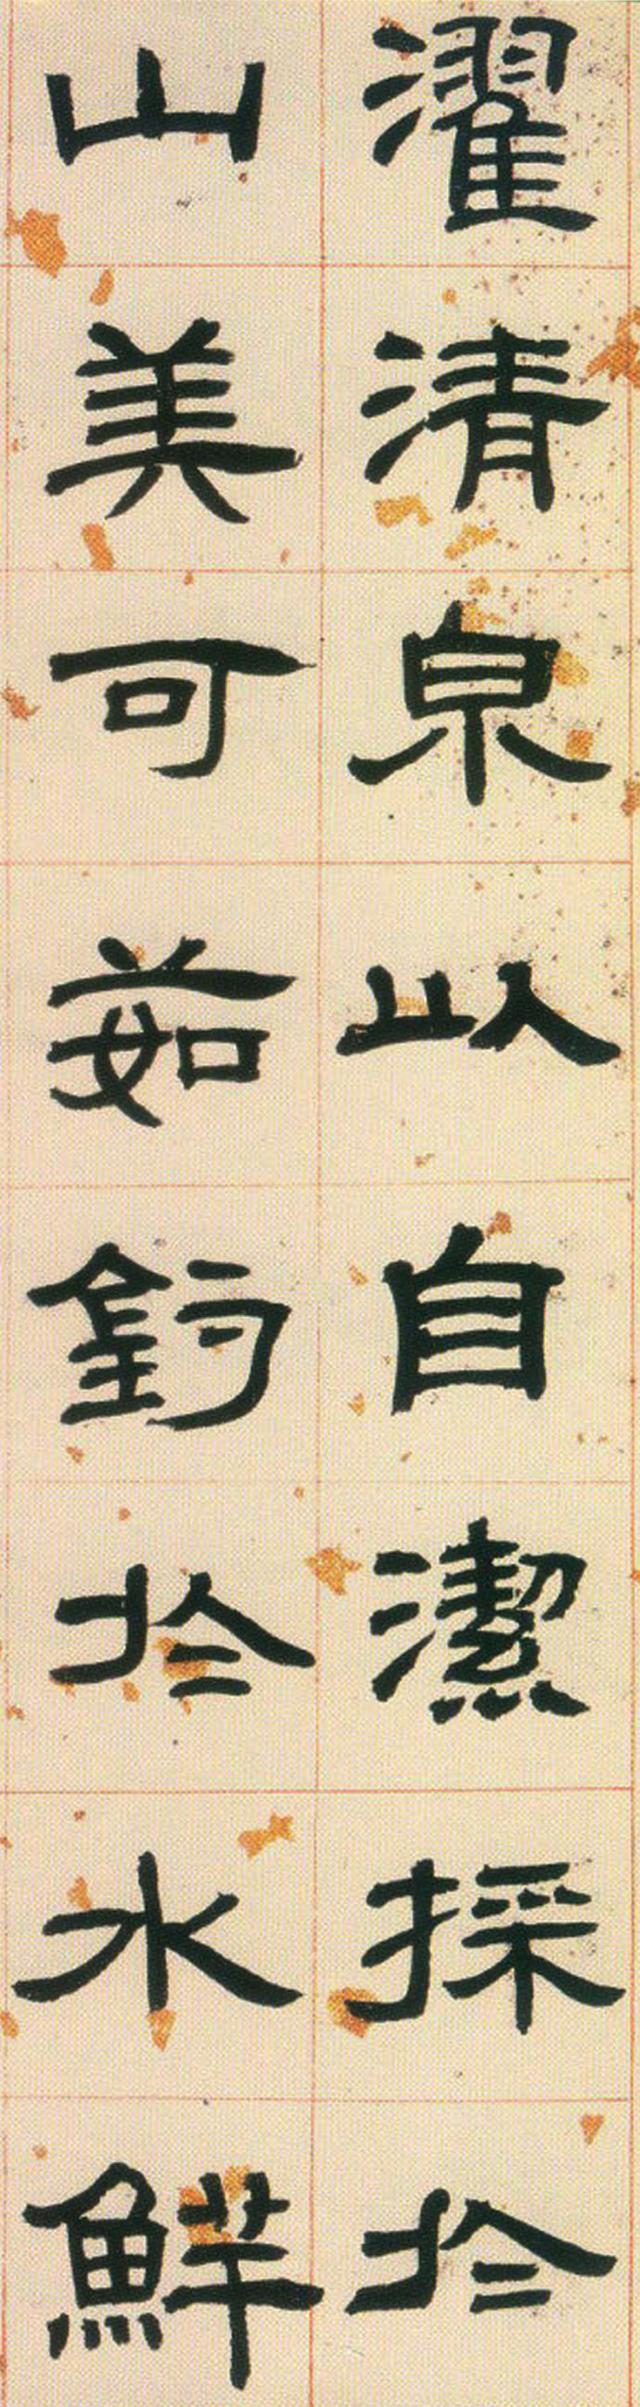 濯清泉以自潔採於
山美可茹釣於水鮮